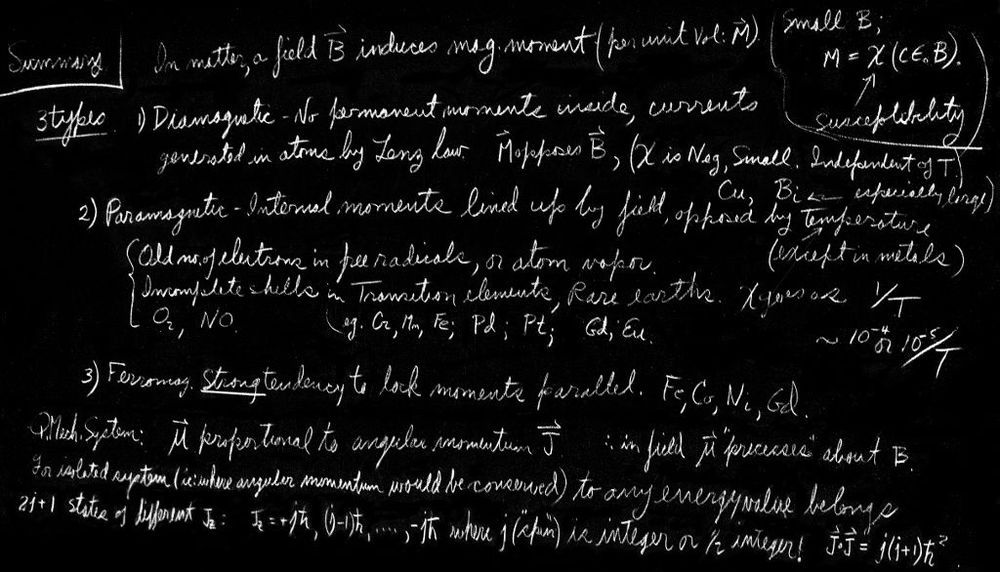 Summary
In matter, a field B⃗ induces mag. moment (per unit vol: M⃗)
Small B;
M = χ (cε₀B).
Susceptibility
3 types
1) Diamagnetic - No permanent moments inside, currents
generated in atoms by Lenz law. M⃗ opposes B⃗, (χ is Neg, Small. Independent of T)
Cu, Bi ← especially large)
2) Paramagnetic - Internal moments lined up by field, opposed by Temperature
(except in metals)
Odd no. of electrons in free radicals, or atom vapor.
Incomplete shells in Transition elements, Rare earths. χ goes as 1/T
O₂, NO. (eg. Cr, Mn, Fe; Pd; Pt; Gd, Eu.
~ 10⁻⁴ or 10⁻⁵/T
3) Ferromag. Strong tendency to lock moments parallel. Fe, Co, Ni, Gd.
Q. Mech. System: μ⃗ proportional to angular momentum J⃗ ∴ in field μ⃗ "precesses" about B.
For isolated system (ie: where angular momentum would be conserved) to any energy value belongs
2j+1 states of different J_z: J_z = +jħ, (j-1)ħ, ...., -jħ where j ("spin") is integer or ½ integer! J⃗·J⃗ = j(j+1)ħ²